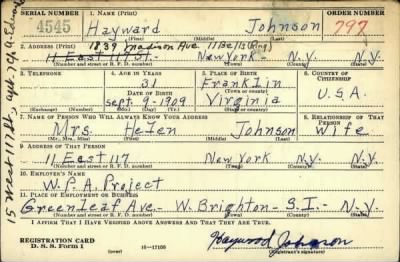 SERIAL NUMBER 1. NAME (Print) ORDER NUMBER
4545 Hayward Johnson 797
(First) (Middle) (Last)
2. ADDRESS (Print) 1839 Madison Ave
11 East 117 St. New York - N.Y. N.Y.
(Number and street or R. F. D. number) (Town) (County) (State)
3. TELEPHONE 4. AGE IN YEARS 5. PLACE OF BIRTH 6. COUNTRY OF CITIZENSHIP
31 Franklin
DATE OF BIRTH (Town or county)
Sept. 9-1909 Virginia U.S.A.
(Exchange) (Number) (Mo.) (Day) (Yr.) (State or country)
7. NAME OF PERSON WHO WILL ALWAYS KNOW YOUR ADDRESS 8. RELATIONSHIP OF THAT PERSON
Mrs. Helen Johnson Wife
(Mr., Mrs., Miss) (First) (Middle) (Last)
9. ADDRESS OF THAT PERSON
11 East 117 New York N.Y.
(Number and street or R. F. D. number) (Town) (County) (State)
10. EMPLOYER'S NAME
W.P.A. Project
11. PLACE OF EMPLOYMENT OR BUSINESS
Greenleaf Ave - W. Brighton - S.I. - N.Y.
(Number and street or R. F. D. number) (Town) (County) (State)
I AFFIRM THAT I HAVE VERIFIED ABOVE ANSWERS AND THAT THEY ARE TRUE.
REGISTRATION CARD
D. S. S. Form 1 (over) 16-17105 Haywood Johnson
(Registrant's signature)
15 West 111 St. apt.